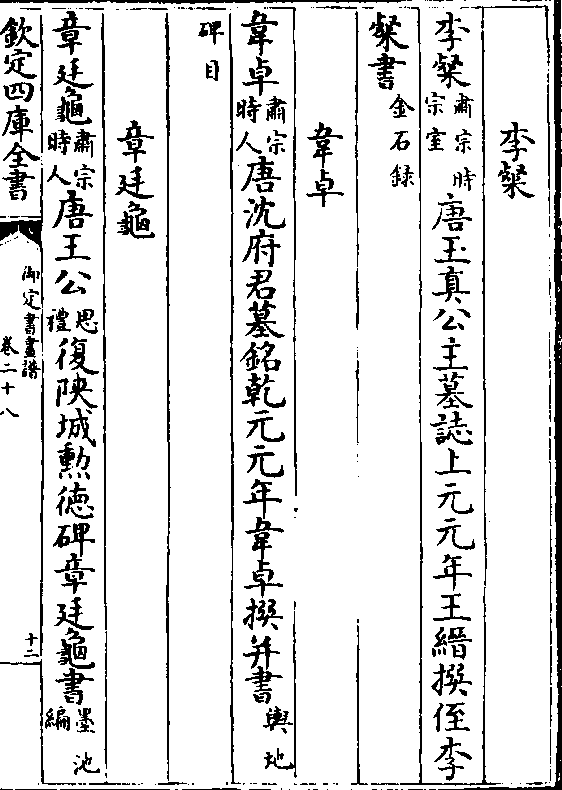 李粲
李粲肅宗時宗室唐玉真公主墓誌上元元年王縉撰侄李
粲書金石錄
韋卓
韋卓肅宗時人唐沈府君墓銘乾元元年韋卓撰并書輿地
碑目
章廷龜
章廷龜肅宗時人唐王公思禮復陜城勲徳碑章廷龜書墨池編
欽定四庫全書
御定書畫譜
卷二十八
十二